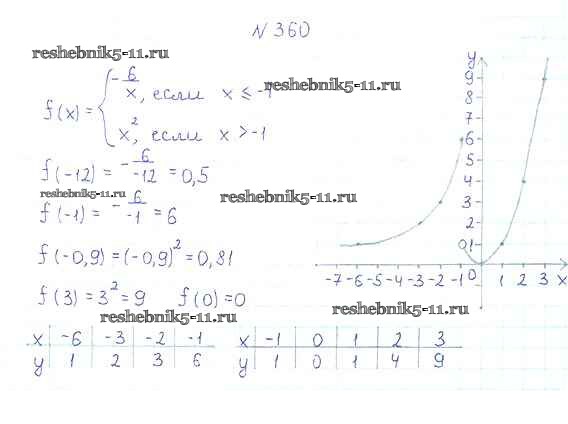 N 360
reshebnik5-11.ru
reshebnik5-11.ru
f(x) = { -6/x, если x ≤ -1
x², если x > -1
f(-12) = -6/-12 = 0,5
reshebnik5-11.ru
reshebnik5-11.ru
f(-1) = -6/-1 = 6
f(-0,9) = (-0,9)² = 0,81
f(3) = 3² = 9 f(0) = 0
reshebnik5-11.ru
reshebnik5-11.ru
x -6 -3 -2 -1
y 1 2 3 6
x -1 0 1 2 3
y 1 0 1 4 9
y
9
8
7
6
5
4
3
2
1
-7 -6 -5 -4 -3 -2 -1 0 1 2 3 x